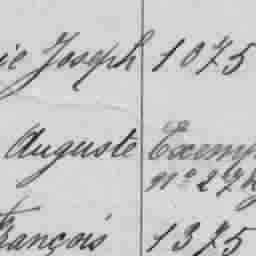 ie Joseph 1075
Auguste Exem
n° 27
François 1375